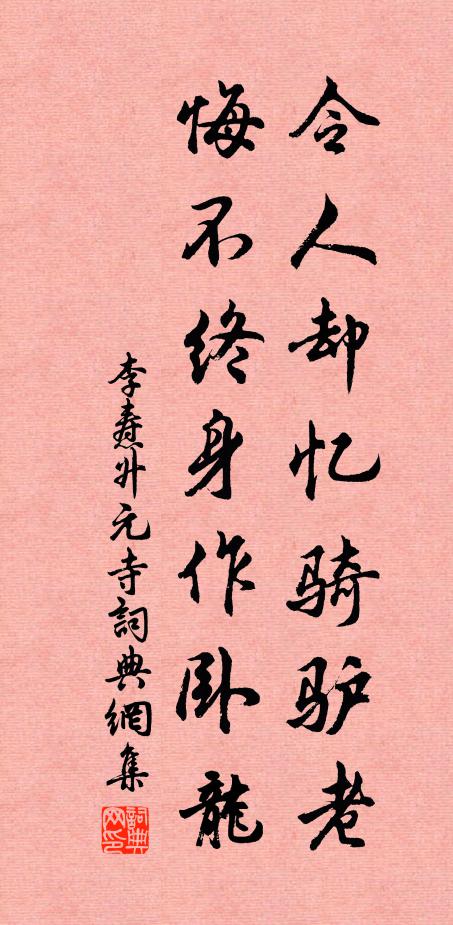 令人却忆骑驴老
悔不终身作卧龍
李焘升元寺詞典網集
詞典
网印